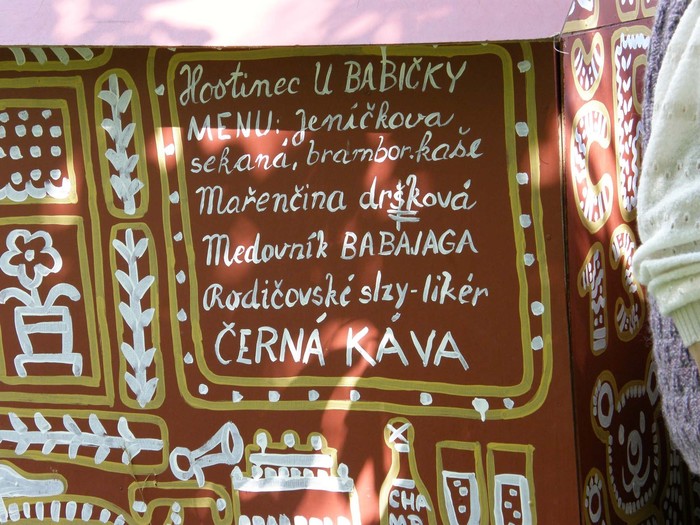 Hostinec U BABIČKY
MENU: Jeníčkova
sekaná, brambor.kaše
Mařenčina dršková
Medovník BABAJAGA
Rodičovské slzy-likér
ČERNÁ KÁVA
CHA
MP